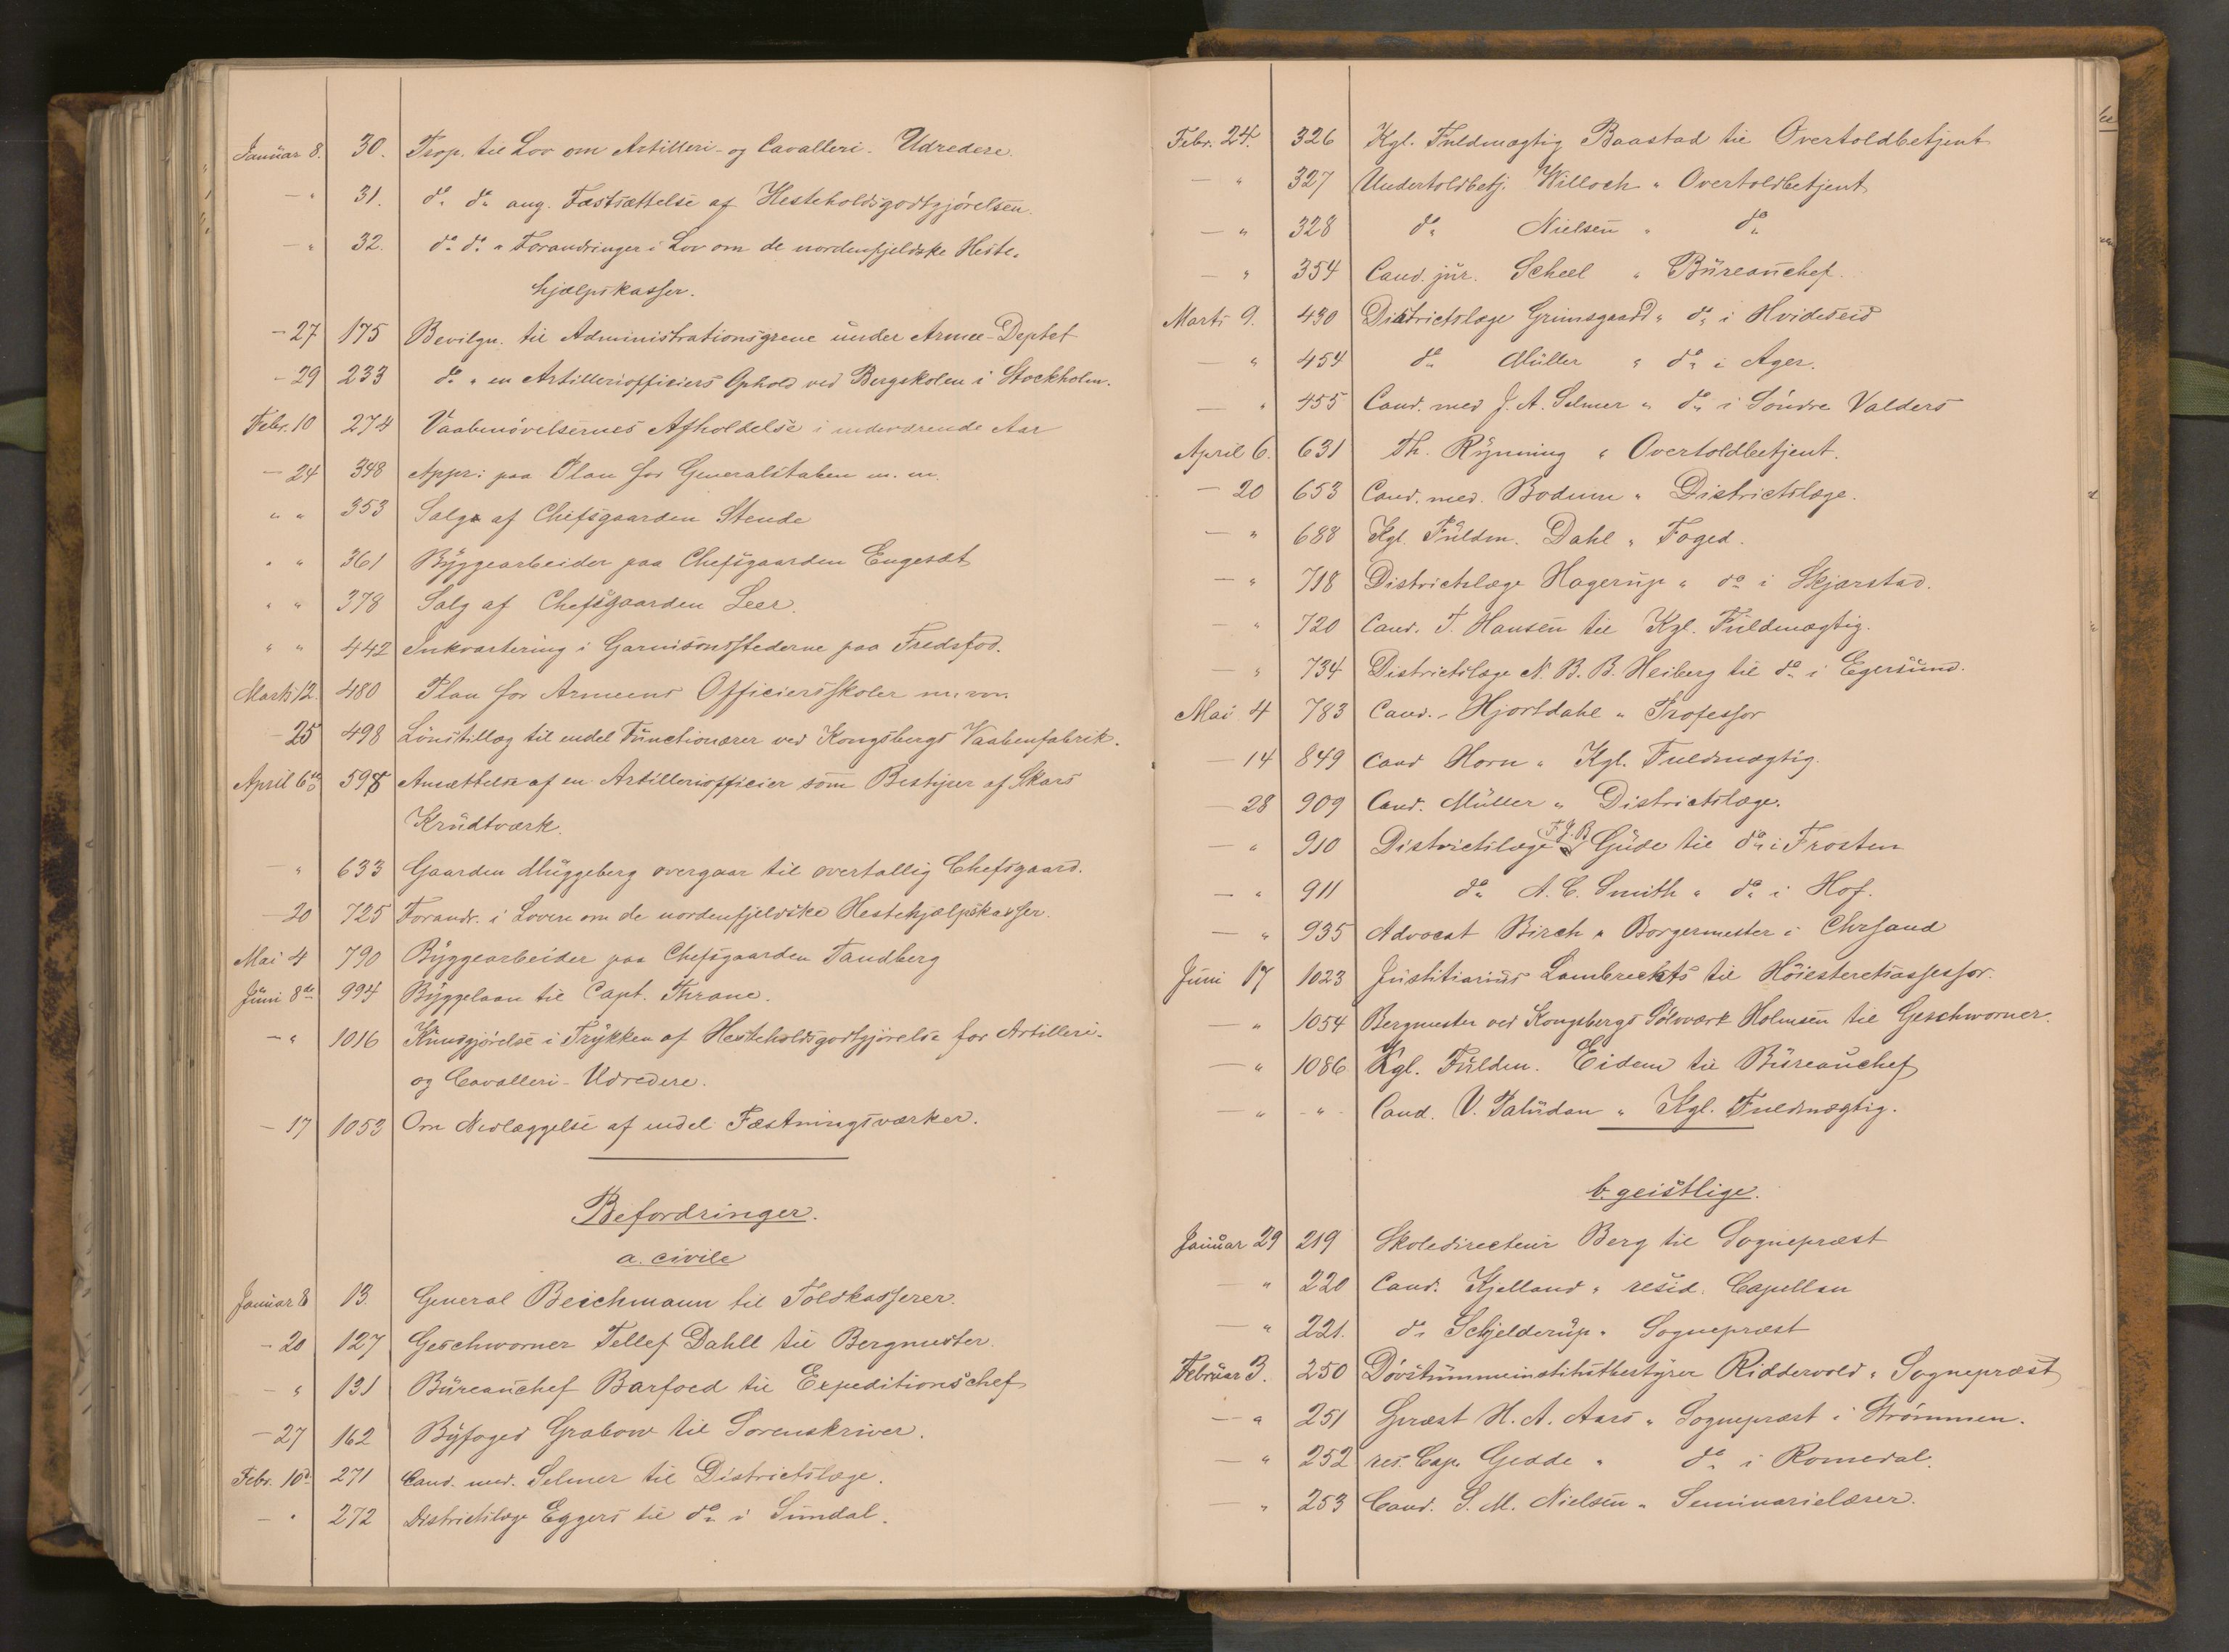 Januar 8. 30. Prop. til Lov om Artilleri- og Cavalleri-Udredere.
— " 31. do do ang. Fastsættelse af Hesteholdsgodtgjörelsen.
— " 32. do do " Forandringer i Lov om de nordenfjeldske Heste-
hjælpskasser.
— 27 175 Bevilgn. til Administrationsgrene under Armee-Deptet
— 29 233 do " en Artilleriofficiers Ophold ved Bergskolen i Stockholm.
Febr. 10 274 Vaabenövelsernes Afholdelse i indeværende Aar
— 24 348 Appr: paa Plan for Generalstaben m. m.
" " 353 Salg af Chefsgaarden Stende
" " 361 Byggearbeider paa Chefsgaarden Engesæt
" " 378 Salg af Chefsgaarden Leer.
" " 442 Inkvartering i Garnisonsstederne paa Fredsfod.
Marts 12. 480 Plan for Armeens Officiersskoler m. m.
— 25 498 Lönstillæg til endel Functionærer ved Kongsbergs Vaabenfabrik.
April 6te 598 Ansættelse af en Artilleriofficier som Bestyrer af Skars
Krudtværk.
— " 633 Gaarden Muggeberg overgaar til overtallig Chefsgaard.
— 20 725 Forandr. i Loven om de nordenfjeldske Hestehjælpskasser.
Mai 4 790 Byggearbeider paa Chefsgaarden Tandberg
Juni 8de 994 Byggelaan til Capt. Thrane.
— " 1016 Kundgjörelse i Trykken af Hesteholdsgodtgjörelse for Artilleri-
og Cavalleri-Udredere.
— 17 1053 Om Nedlæggelse af endel Fæstningsværker.
Befordringer.
a. civile
Januar 8 13. General Beichmann til Toldkasserer.
— 20 127 Geschworner Tellef Dahll til Bergmester.
— " 131 Büreauchef Barfoed til Expeditionschef
— 27 162 Byfoged Grabow til Sorenskriver.
Febr. 10d 271 Cand. med. Selmer til Districtslæge.
— " 272 Districtslæge Eggers til do i Sundal.
Febr. 24. 326 Kgl. Fuldmægtig Baastad til Overtoldbetjent
— " 327 Undertoldbetj. Willoch " Overtoldbetjent
— " 328 do Nielsen " do
— " 354 Cand. jur. Scheel " Büreauchef.
Marts 9. 430 Districtslæge Grimsgaard " do i Hvideseid
— " 454 do Müller " do i Ager.
— " 455 Cand. med J. A. Selmer " do i Söndre Valders
April 6. 631 Th. Rynning " Overtoldbetjent.
— 20 653 Cand. med. Bodum " Districtslæge.
— " 688 Kgl. Fuldm. Dahl " Foged.
— " 718 Districtslæge Hagerup " do i Skjærstad.
— " 720 Cand. T. Hansen til Kgl. Fuldmægtig.
— " 734 Districtslæge N. B. B. Heiberg til do i Egersund.
Mai 4 783 Cand. - Hjortdahl " Professor
— 14 849 Cand Horn " Kgl. Fuldmægtig.
— 28 909 Cand. Müller " Districtslæge.
— " 910 Districtslæge F. G. B Gude til do i Frosten
— " 911 do A. C. Smith " do i Hof.
— " 935 Advocat Birch " Borgermester i Chrsand
Juni 17 1023 Justitiarius Lambrechts til Höiesteretsassessor.
— " 1054 Bergmester ved Kongsbergs Sölvværk Holmsen til Geschworner.
— " 1086 Kgl. Fuldm. Eidem til Büreauchef
— " - " - Cand. V. Paludan " Kgl. Fuldmægtig.
b. geistlige.
Januar 29 219 Skoledirecteur Berg til Sognepræst
— " 220 Cand. Kjelland " resid. Capellan
— " 221. do Schjelderup " Sognepræst
Februar 3. 250 Dövstummeinstitutbestyrer Riddervold " Sognepræst
— " 251 Præst H. A. Aars " Sognepræst i Strömmen.
— " 252 res. Cap. Gedde " do i Romedal.
— " 253 Cand. S. M. Nielsen " Seminarielærer.